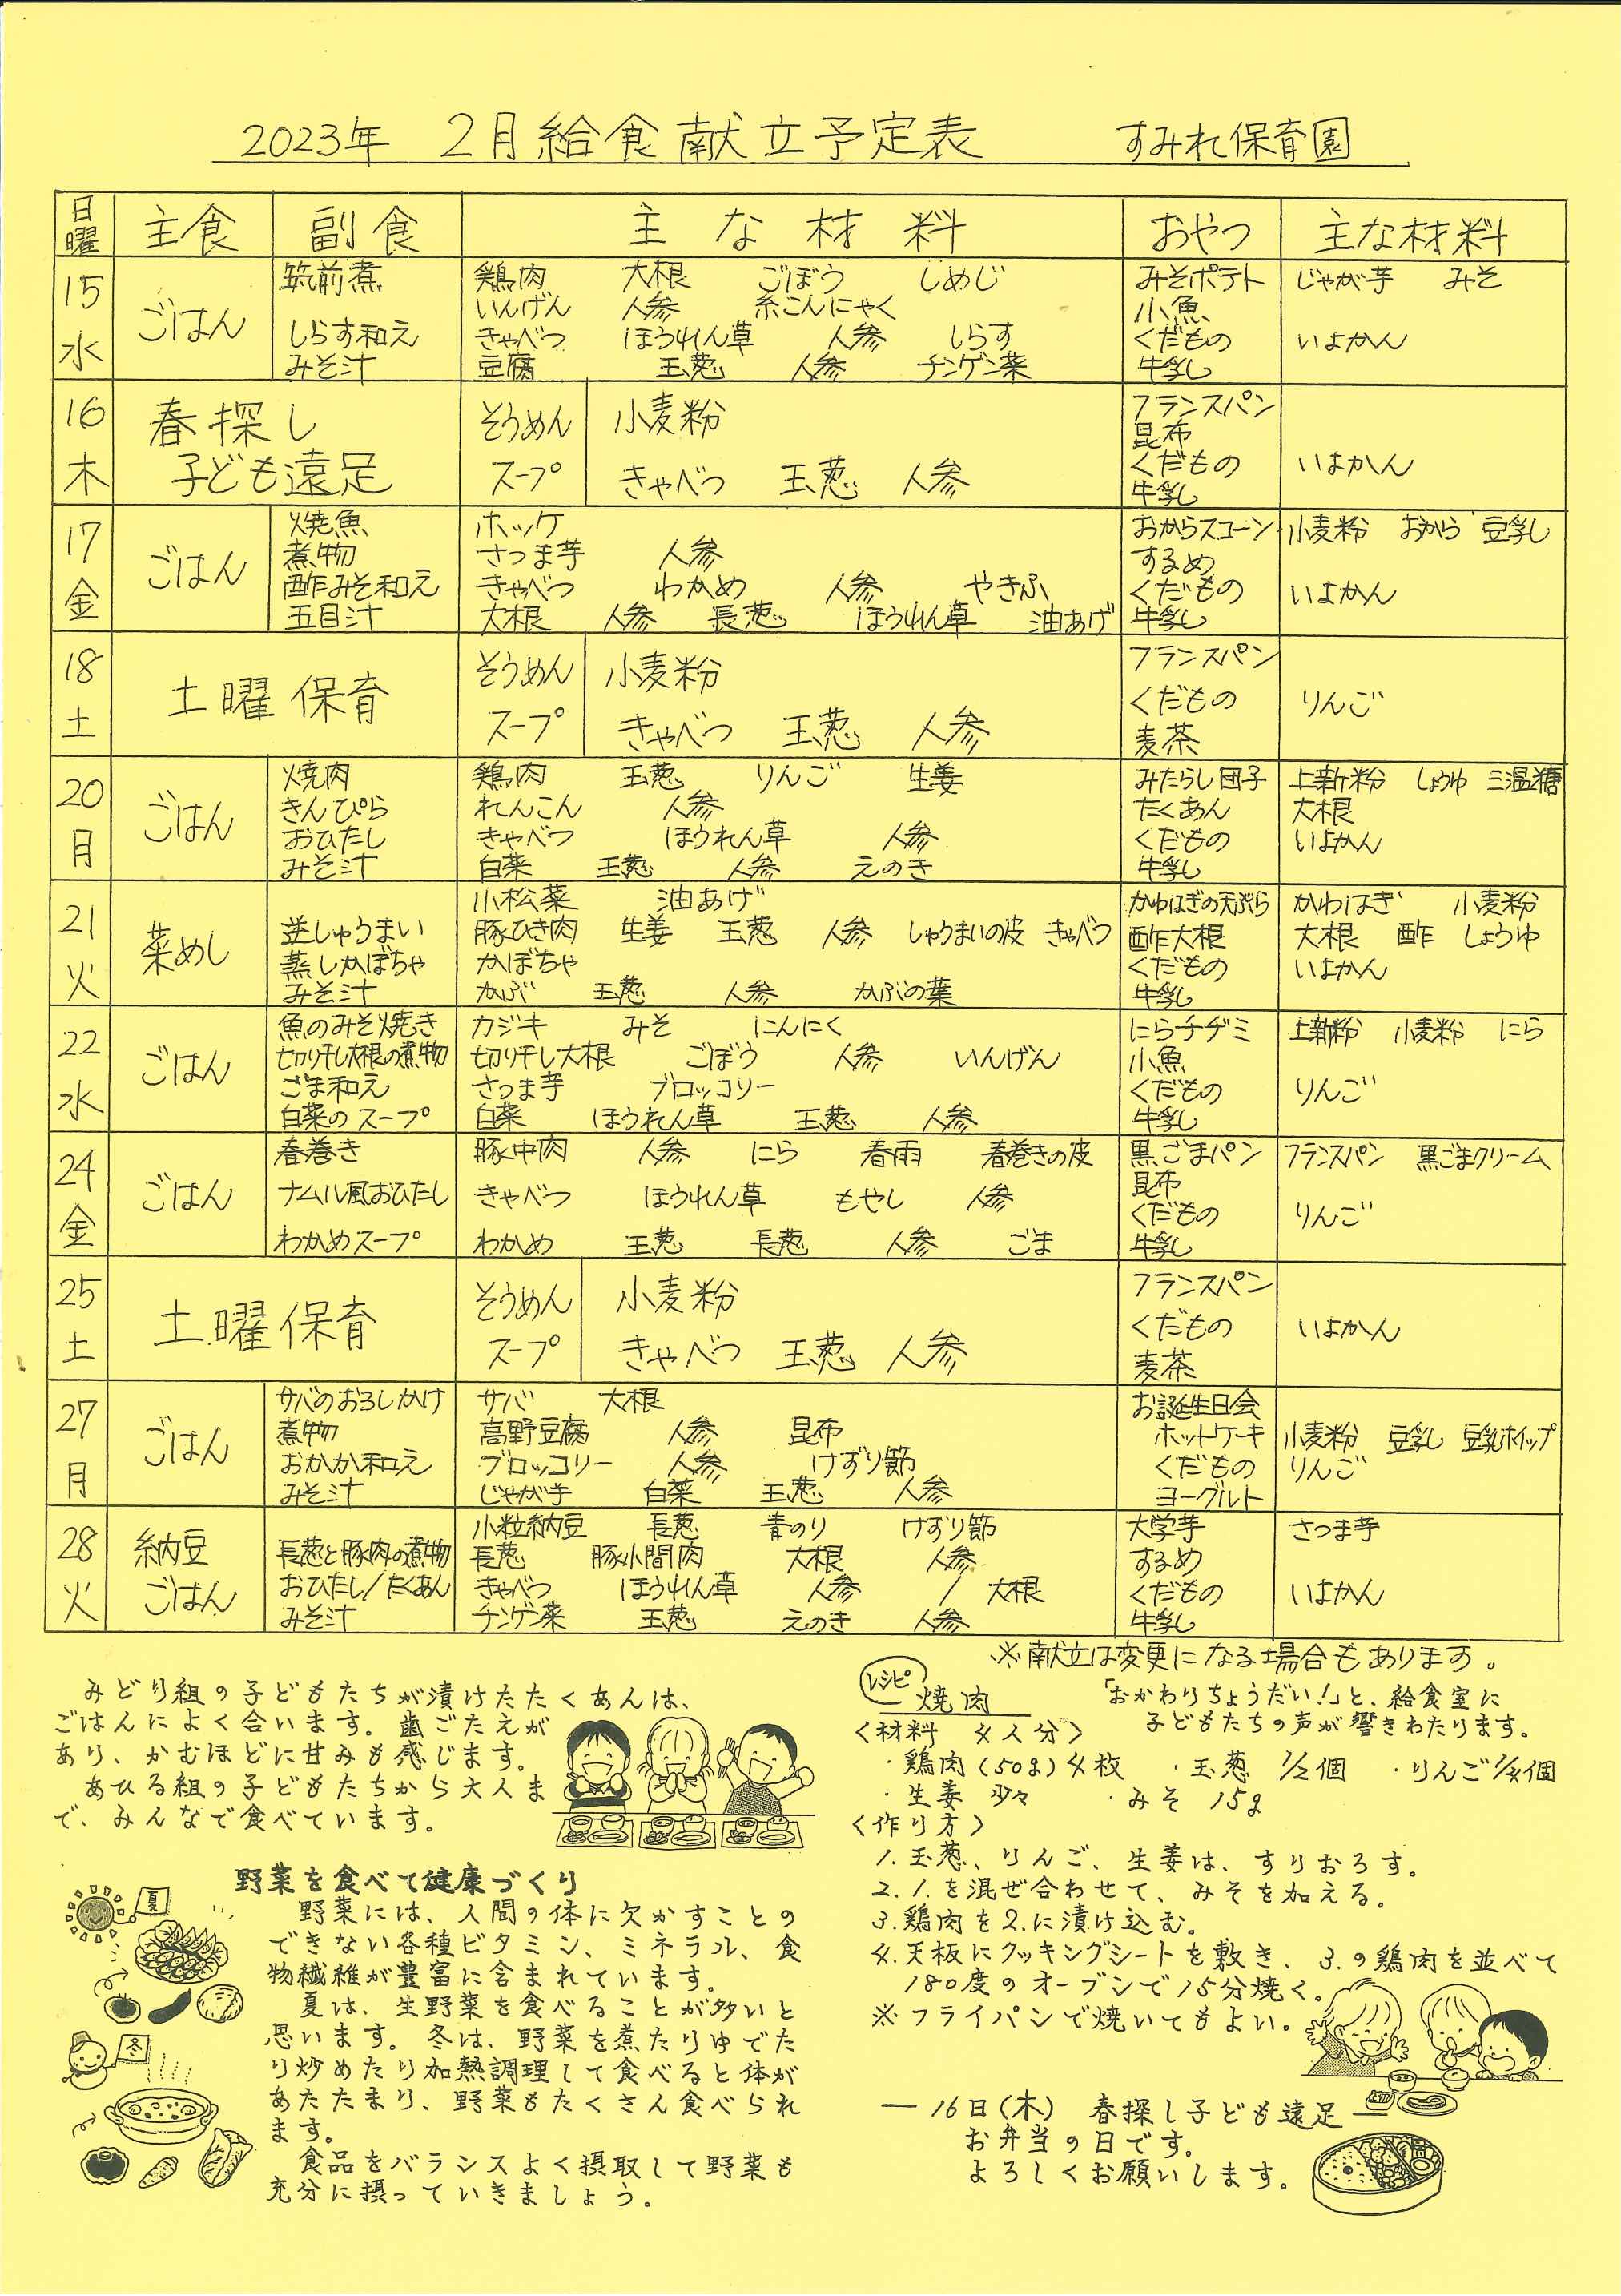 2023年 2月給食献立予定表 すみれ保育園
日曜 主食 副食 主な材料 おやつ 主な材料
15 水 ごはん
筑前煮 鶏肉 大根 ごぼう しめじ みそポテト じゃが芋 みそ
いんげん 人参 糸こんにゃく 小魚
しらす和え きゃべつ ほうれん草 人参 しらす くだもの いよかん
みそ汁 豆腐 玉葱 人参 チンゲン菜 牛乳
16 木 春探し 子ども遠足
そうめん 小麦粉 フランスパン
昆布
スープ きゃべつ 玉葱 人参 くだもの いよかん
牛乳
17 金 ごはん
焼魚 ホッケ おからスコーン 小麦粉 おから 豆乳
煮物 さつま芋 人参 するめ
酢みそ和え きゃべつ わかめ 人参 やきふ くだもの いよかん
五目汁 大根 人参 長葱 ほうれん草 油あげ 牛乳
18 土 土曜保育
そうめん 小麦粉 フランスパン
くだもの りんご
スープ きゃべつ 玉葱 人参 麦茶
20 月 ごはん
焼肉 鶏肉 玉葱 りんご 生姜 みたらし団子 上新粉 しょうゆ 三温糖
きんぴら れんこん 人参 たくあん 大根
おひたし きゃべつ ほうれん草 人参 くだもの いよかん
みそ汁 白菜 玉葱 人参 えのき 牛乳
21 火 菜めし
小松菜 油あげ かわはぎの天ぷら かわはぎ 小麦粉
逆しゅうまい 豚ひき肉 生姜 玉葱 人参 しゅうまいの皮 きゃべつ 酢大根 大根 酢 しょうゆ
蒸しかぼちゃ かぼちゃ くだもの いよかん
みそ汁 かぶ 玉葱 人参 かぶの葉 牛乳
22 水 ごはん
魚のみそ焼き カジキ みそ にんにく にらチヂミ 上新粉 小麦粉 にら
切り干し大根の煮物 切り干し大根 ごぼう 人参 いんげん 小魚
ごま和え さつま芋 ブロッコリー くだもの りんご
白菜のスープ 白菜 ほうれん草 玉葱 人参 牛乳
24 金 ごはん
春巻き 豚中肉 人参 にら 春雨 春巻きの皮 黒ごまパン フランスパン 黒ごまクリーム
昆布
ナムル風おひたし きゃべつ ほうれん草 もやし 人参 くだもの りんご
わかめスープ わかめ 玉葱 長葱 人参 ごま 牛乳
25 土 土曜保育
そうめん 小麦粉 フランスパン
くだもの いよかん
スープ きゃべつ 玉葱 人参 麦茶
27 月 ごはん
サバのおろしかけ サバ 大根 お誕生日会
煮物 高野豆腐 人参 昆布 ホットケーキ 小麦粉 豆乳 豆乳ホイップ
おかか和え ブロッコリー 人参 けずり節 くだもの りんご
みそ汁 じゃが芋 白菜 玉葱 人参 ヨーグルト
28 火 納豆ごはん
小粒納豆 長葱 青のり けずり節 大学芋 さつま芋
長葱と豚肉の煮物 長葱 豚小間肉 大根 人参 するめ
おひたし/たくあん きゃべつ ほうれん草 人参 / 大根 くだもの いよかん
みそ汁 チンゲン菜 玉葱 えのき 人参 牛乳
※献立は変更になる場合もあります。
みどり組の子どもたちが漬けたたくあんは、
ごはんによく合います。歯ごたえが
あり、かむほどに甘みも感じます。
あひる組の子どもたちから大人ま
で、みんなで食べています。
野菜を食べて健康づくり
夏
野菜には、人間の体に欠かすことの
できない各種ビタミン、ミネラル、食
物繊維が豊富に含まれています。
夏は、生野菜を食べることが多いと
思います。冬は、野菜を煮たりゆでた
り炒めたり加熱調理して食べると体が
あたたまり、野菜もたくさん食べられ
ます。
冬
食品をバランスよく摂取して野菜も
充分に摂っていきましょう。
レシピ 焼肉
「おかわりちょうだい!」と、給食室に
子どもたちの声が響きわたります。
〈材料 4人分〉
・鶏肉(50g)4枚 ・玉葱 1/2個 ・りんご1/4個
・生姜 少々 ・みそ 15g
〈作り方〉
1.玉葱、りんご、生姜は、すりおろす。
2.1.を混ぜ合わせて、みそを加える。
3.鶏肉を2.に漬け込む。
4.天板にクッキングシートを敷き、3.の鶏肉を並べて
180度のオーブンで15分焼く。
※フライパンで焼いてもよい。
―16日(木) 春探し子ども遠足―
お弁当の日です。
よろしくお願いします。